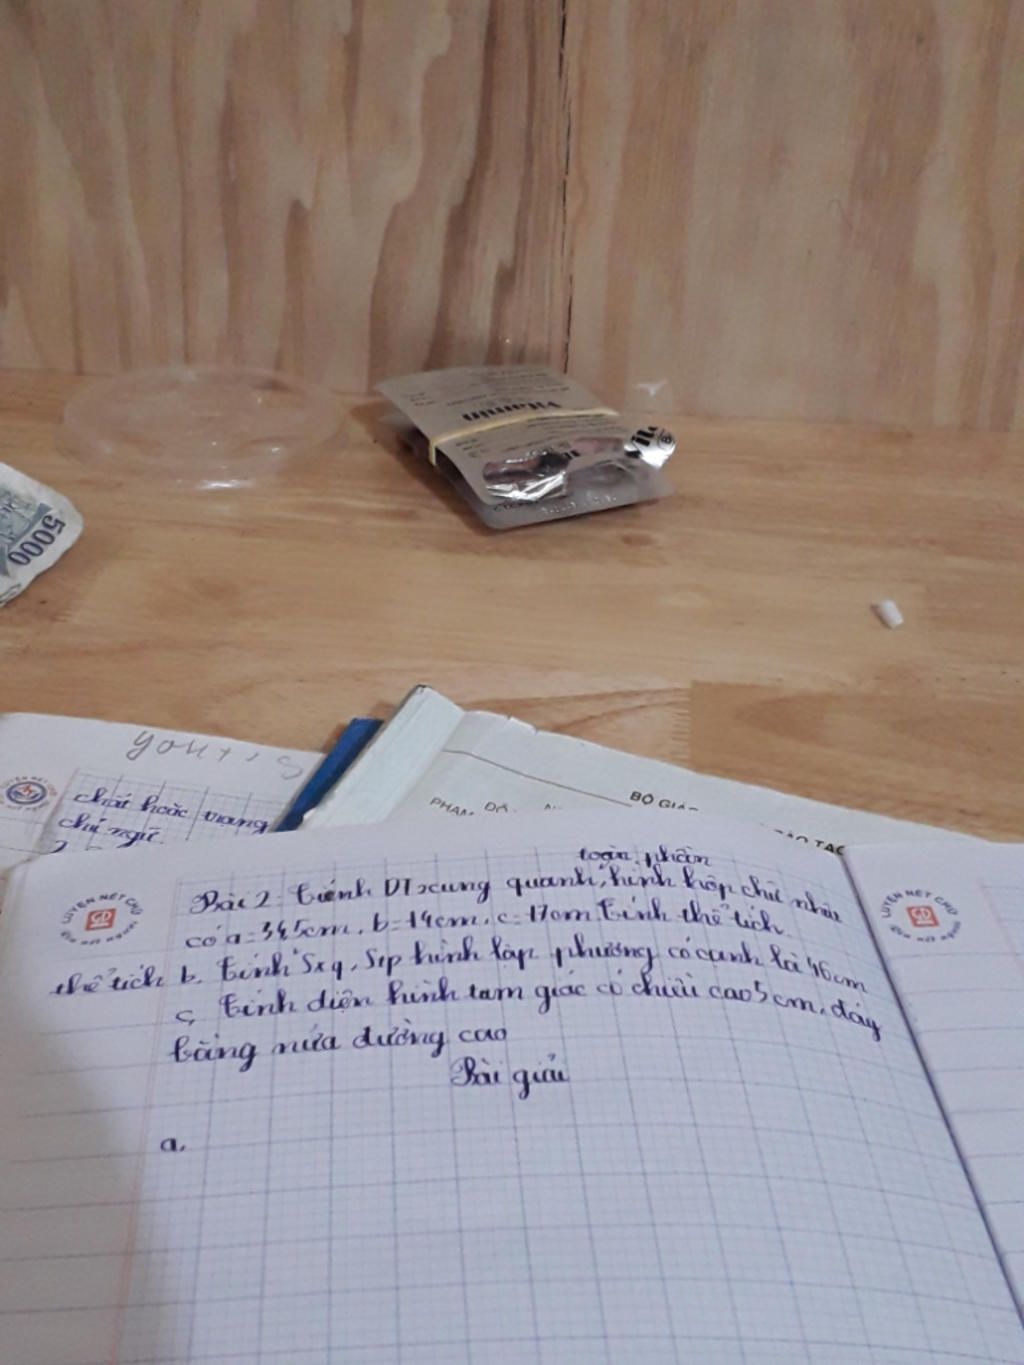 Vitamin
5000
your's
chất hoặc trạng
chủ ngữ
BỘ GIÁO
PHẠM
LUYỆN NÉT CHỮ
toàn phần
Bài 2: Tính DT xung quanh, hình hộp chữ nhâu
có a = 34,5cm, b = 14cm, c = 17cm. Tính thể tích.
thể tích b. Tính Sxq, Stp hình lập phương có cạnh là 46cm
c, Tính diện hình tam giác có chiều cao 5cm, đáy
bằng nửa đường cao
Bài giải
a,
LUYỆN NÉT CHỮ